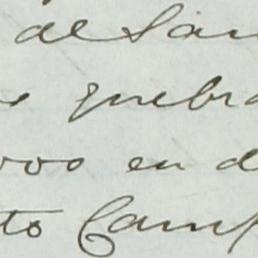 de San
quebra
000 en d
to Camp